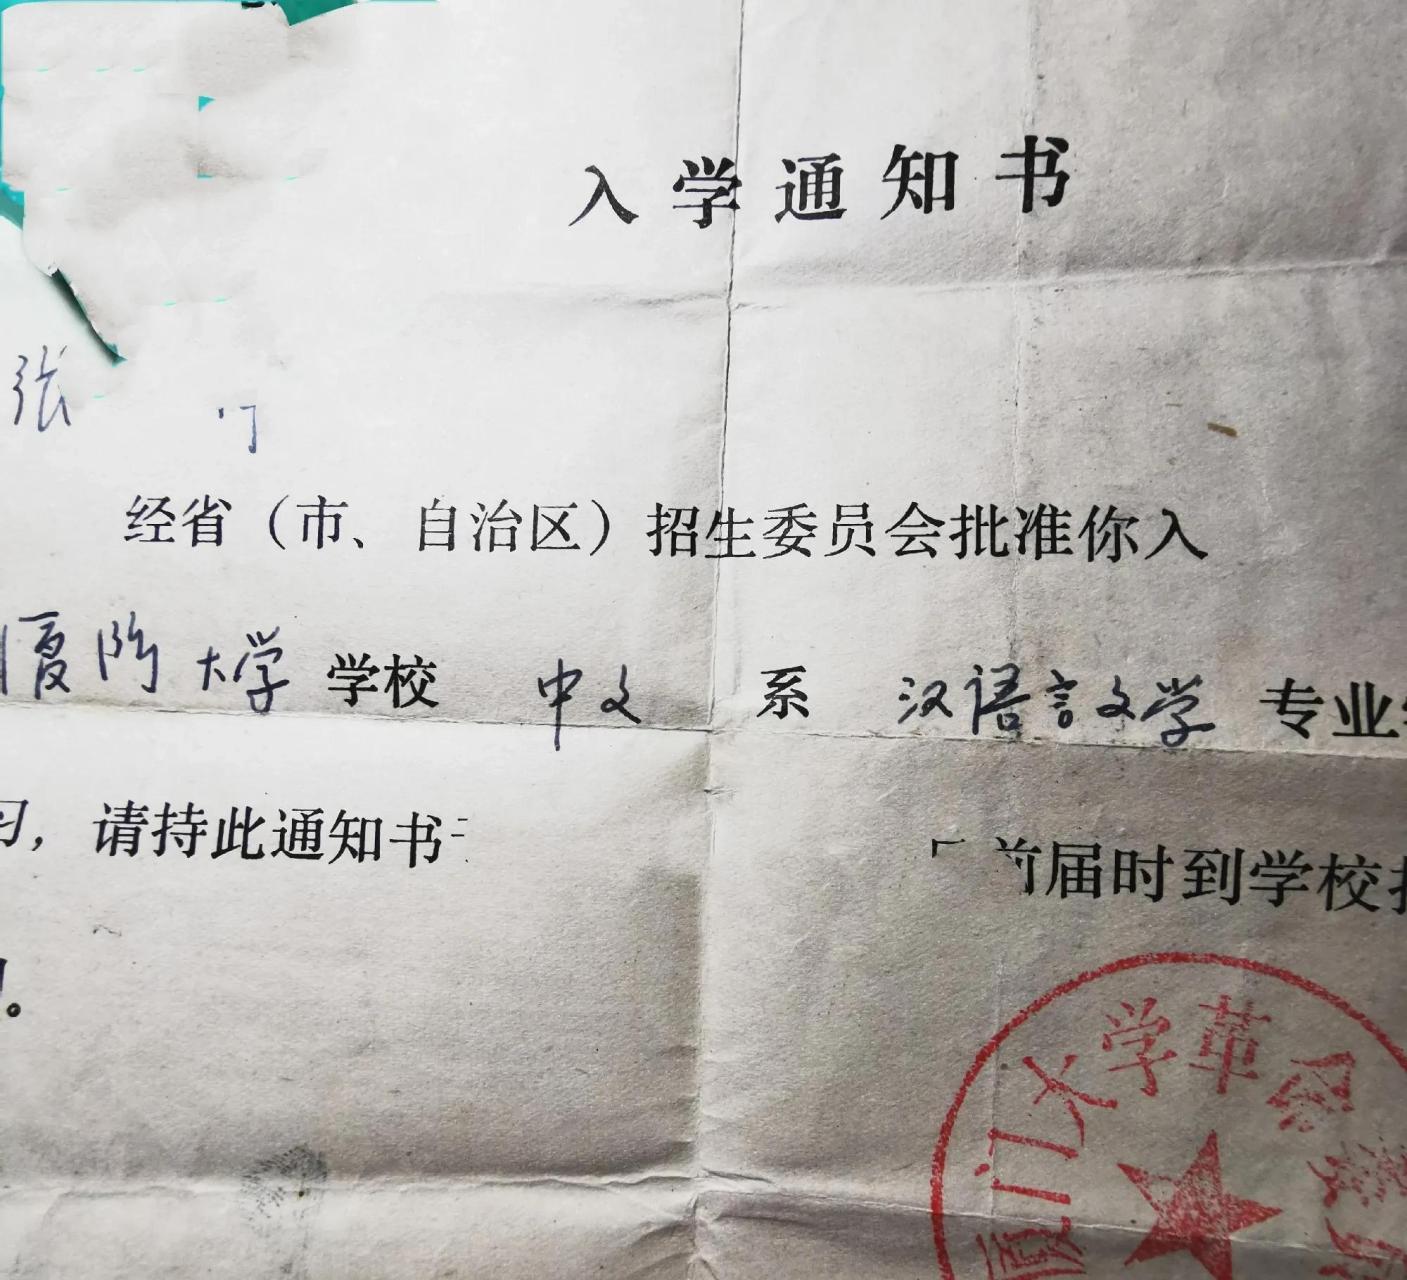 入学通知书
张
经省（市、自治区）招生委员会批准你入
厦门大学 学校 中文 系 汉语言文学 专业
习，请持此通知书 前届时到学校
。
厦门大学革命委员